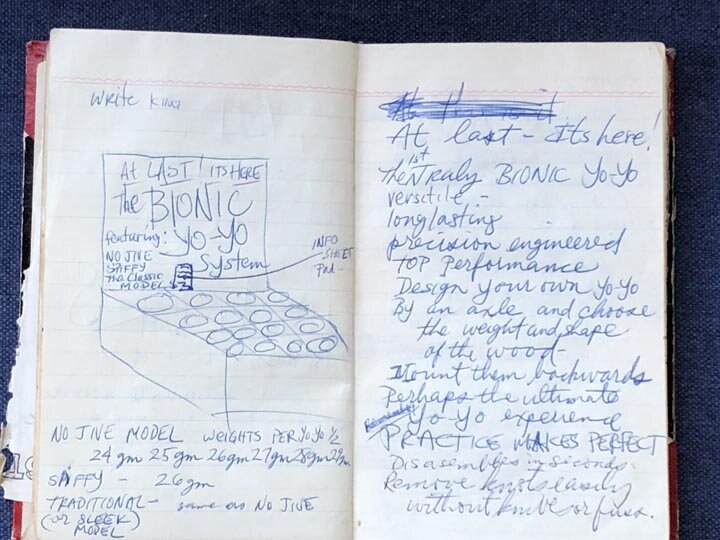 Write King
At LAST ITS HERE
the BIONIC
featuring: Yo-Yo
NO JIVE System
SPIFFY
the Classic
MODEL
INFO
SHEET
Pad-
NO JIVE MODEL WEIGHTS PER YOYO ½
24 gm 25 gm 26 gm 27 gm 28 gm 29 gm
SPIFFY - 26 gm
TRADITIONAL - same as NO JIVE
(or SLEEK)
MODEL
At last - its here!
the 1st Truly BIONIC Yo-Yo
versitile -
longlasting
precision engineered
TOP Performance
Design your own yo-yo
By an axle and choose
the weight and shape
of the wood -
Mount them backwards
Perhaps the ultimate
Yo-Yo experience
PRACTICE MAKES PERFECT
Disasembles in Seconds
Remove knots easily
without knife or fuss.